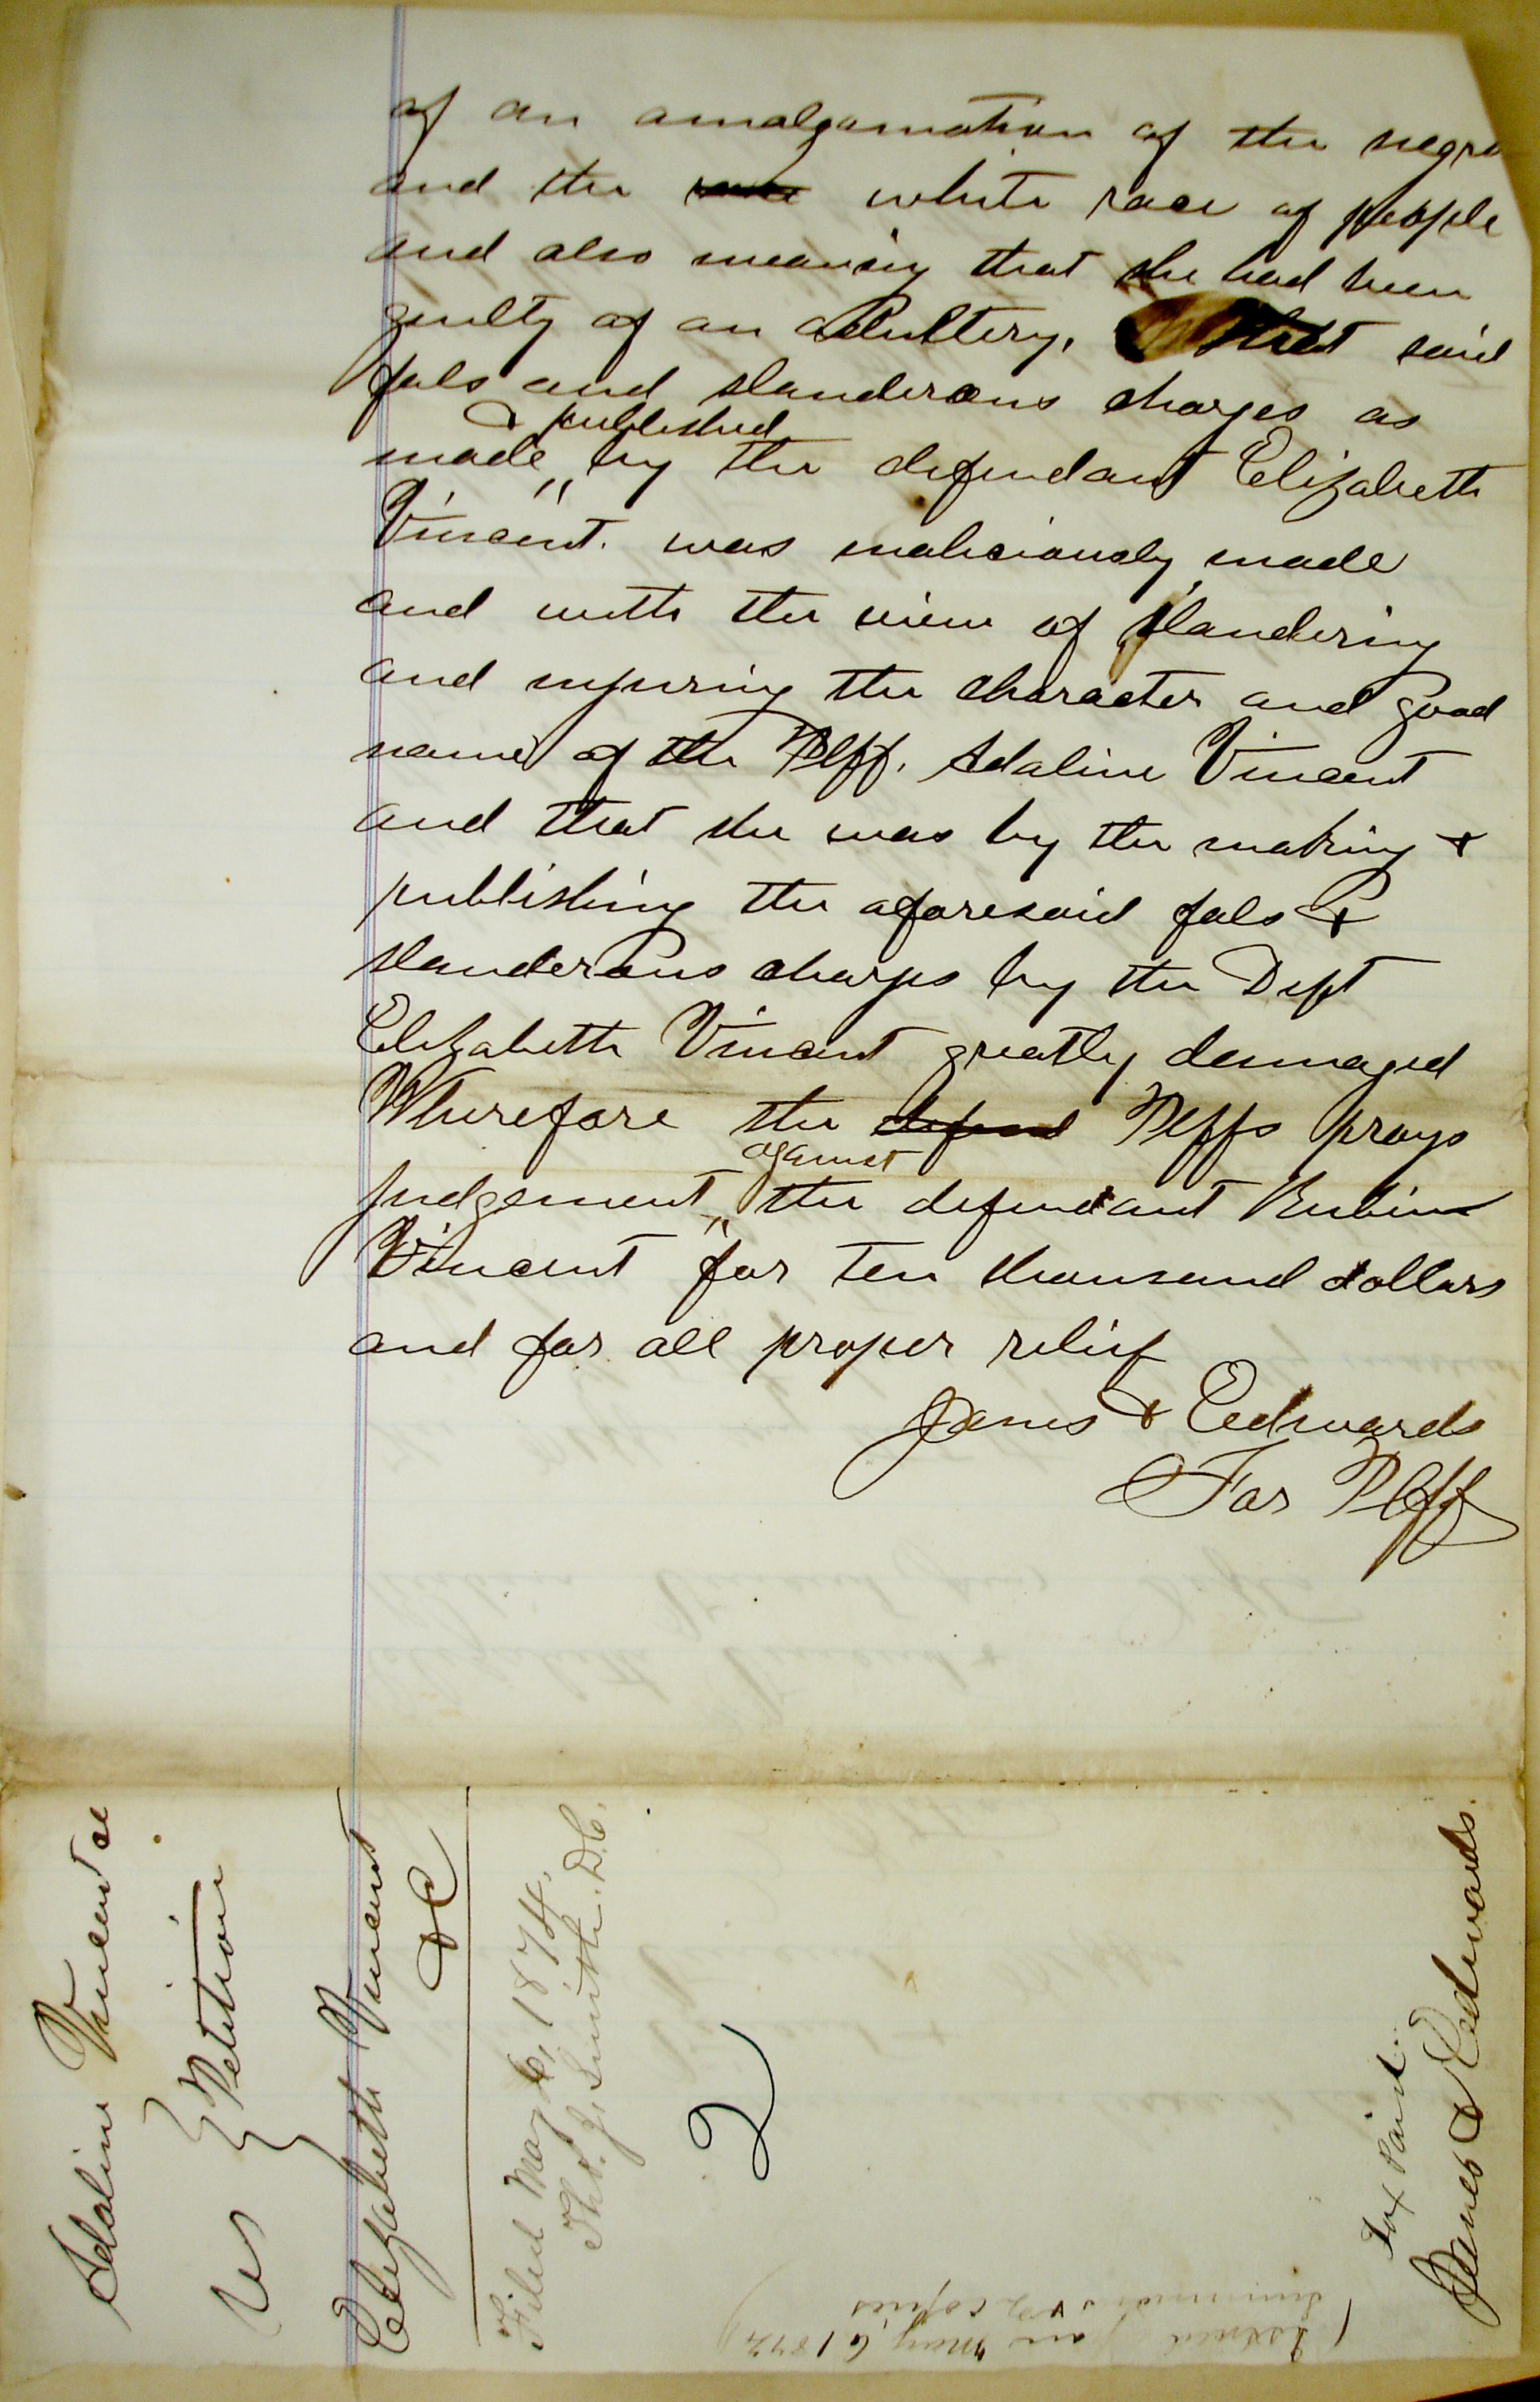 of an amalgamation of the negro
and the white race of people
and also meaning that she had been
guilty of an adultery. that said
fals and slanderous charges as
& published
made by the defendant Elizabeth
Vincent. was maliciously made
and with the view of slandering
and injuring the character and good
name of the Plff. Adaline Vincent
and that she was by the making &
publishing the aforesaid fals &
slanderous charges by the Deft
Elizabeth Vincent greatly damaged
Wherefore the defend Plffs prays
against
judgement the defendant Rubin
Vincent for ten thousand dollars
and for all proper relief
James & Edwards
For Plff
Adaline Vincent
vs } Petition
Elizabeth Vincent
&C
Filed May 6, 1874.
Thos. J. Smith. D.C.
2
Tax Paid.
James & Edwards.
Issued May 6 1874
Summons & 2 copies